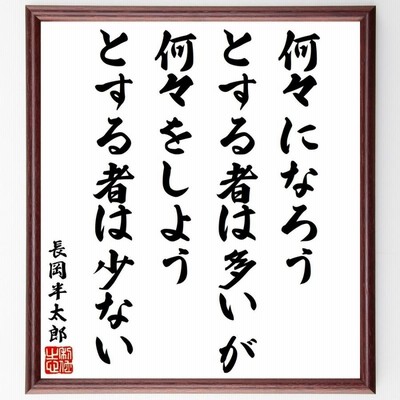 何々になろう
とする者は多いが
何々をしよう
とする者は少ない
長岡半太郎